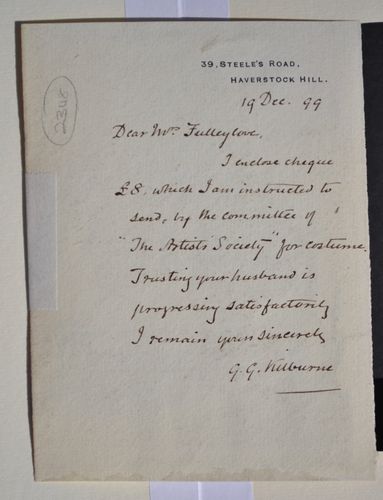 39, STEELE'S ROAD,
HAVERSTOCK HILL.
2348
19 Dec. 99
Dear Mrs. Fulleylove,
I enclose cheque
£8, which I am instructed to
send, by the committee of
"The Artists' Society" for costume.
Trusting your husband is
progressing satisfactorily
I remain yours sincerely
G. G. Kilburne